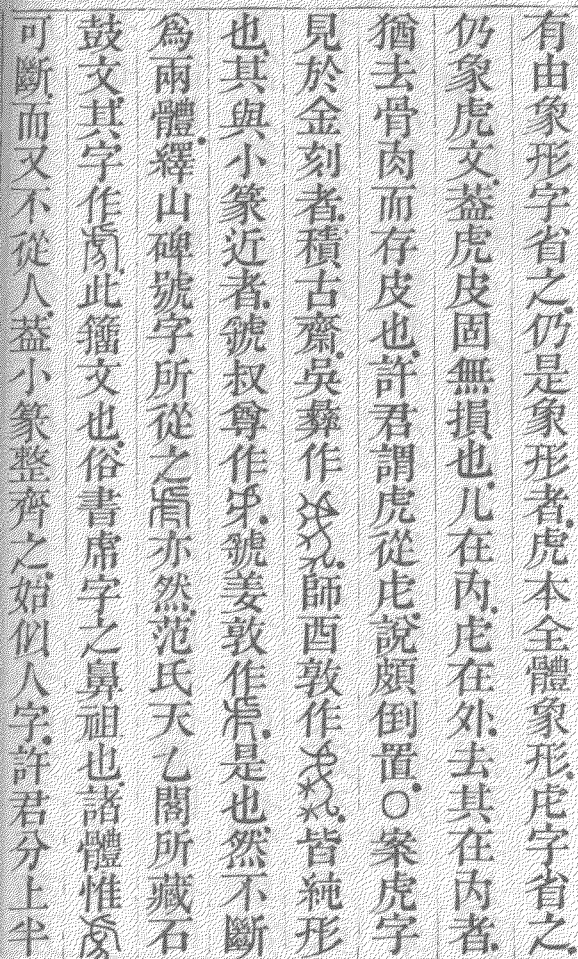 有由象形字省之仍是象形者虎本全體象形虍字省之
仍象虎文葢虎皮固無損也儿在內虍在外去其在內者
猶去骨肉而存皮也許君謂虎從虍說頗倒置○案虎字
見於金刻者積古齋吳彝作師酉敦作皆純形
也其與小篆近者虢叔尊作虢姜敦作是也然不斷
爲兩體繹山碑號字所從之亦然范氏天乙閣所藏石
鼓文其字作此籒文也俗書虎字之鼻祖也諸體惟
可斷而又不從人葢小篆整齊之始似人字許君分上半